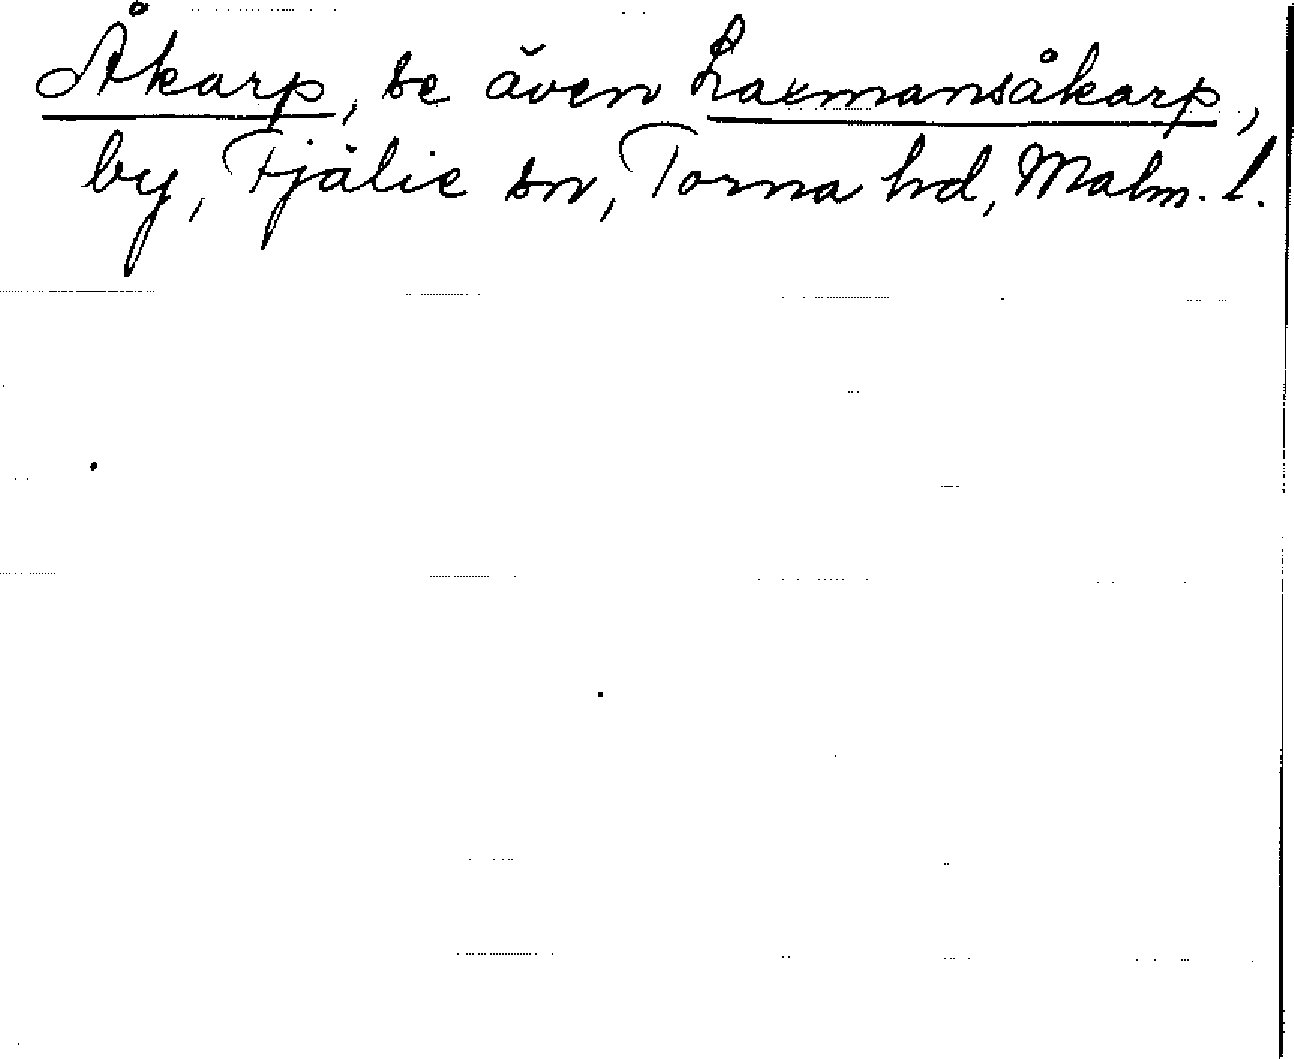 Åkarp, se även Laxmansåkarp,
by, Fjälie sn, Torna hd, Malm. l.